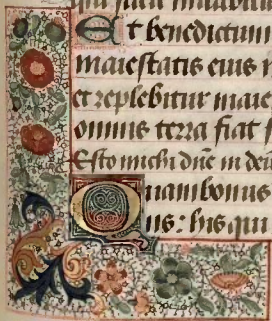 qui facit mirabilia
Et benedictum
maiestatis eius
et replebitur maie
omnis terra fiat f
Esto michi dñe in deu
Quam bonus
us: his qui